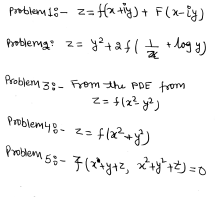 Problem 1:- z = f(x+iy) + F(x-iy)
Problem 2:- z = y² + 2f(1/x + log y)
Problem 3:- From the PDE from
z = f(x²-y²)
Problem 4:- z = f(x²+y²)
Problem 5:- f(x+y+z, x²+y²+z) = 0